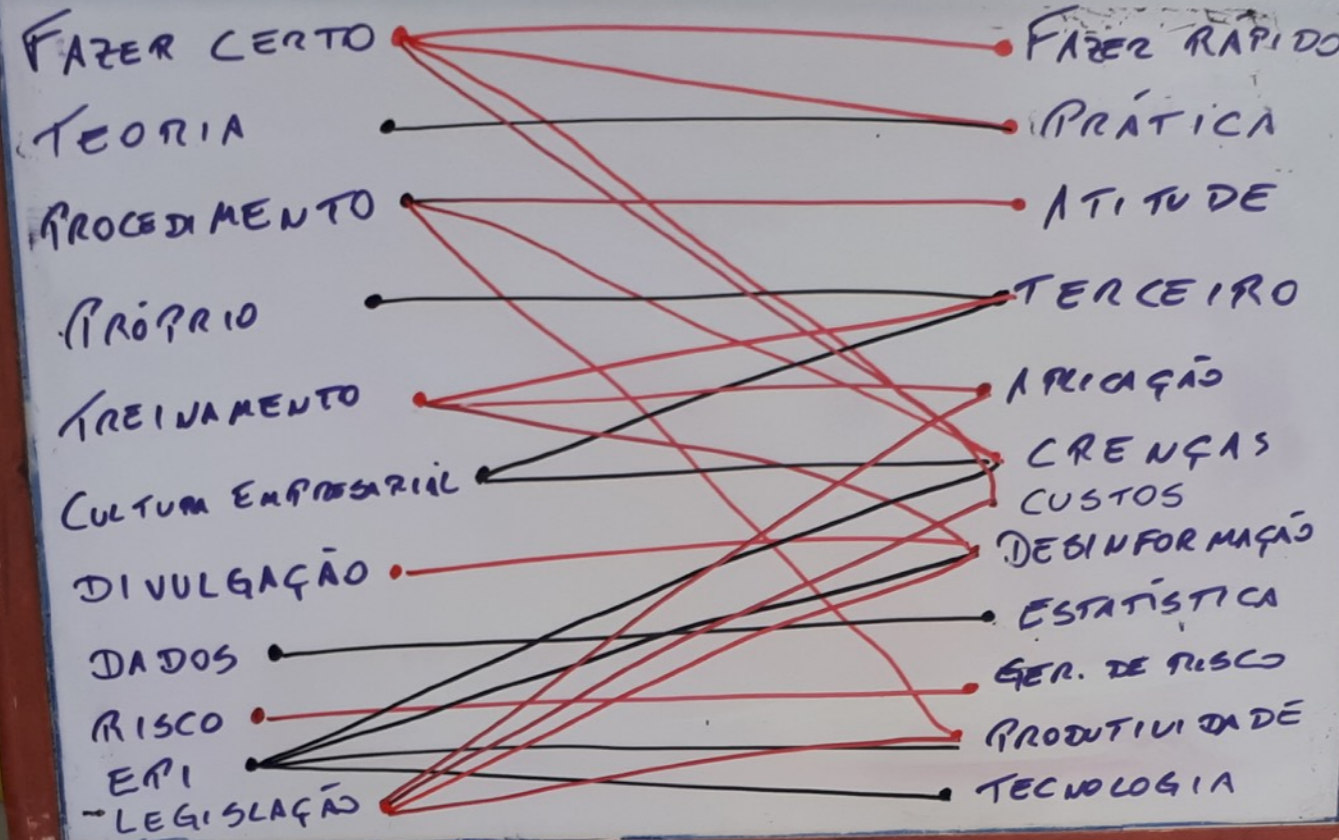 FAZER CERTO
TEORIA
PROCEDIMENTO
PRÓPRIO
TREINAMENTO
CULTURA EMPRESARIAL
DIVULGAÇÃO
DADOS
RISCO
EPI
- LEGISLAÇÃO
FAZER RÁPIDO
PRÁTICA
ATITUDE
TERCEIRO
APLICAÇÃO
CRENÇAS
CUSTOS
DESINFORMAÇÃO
ESTATÍSTICA
GER. DE RISCO
PRODUTIVIDADE
TECNOLOGIA